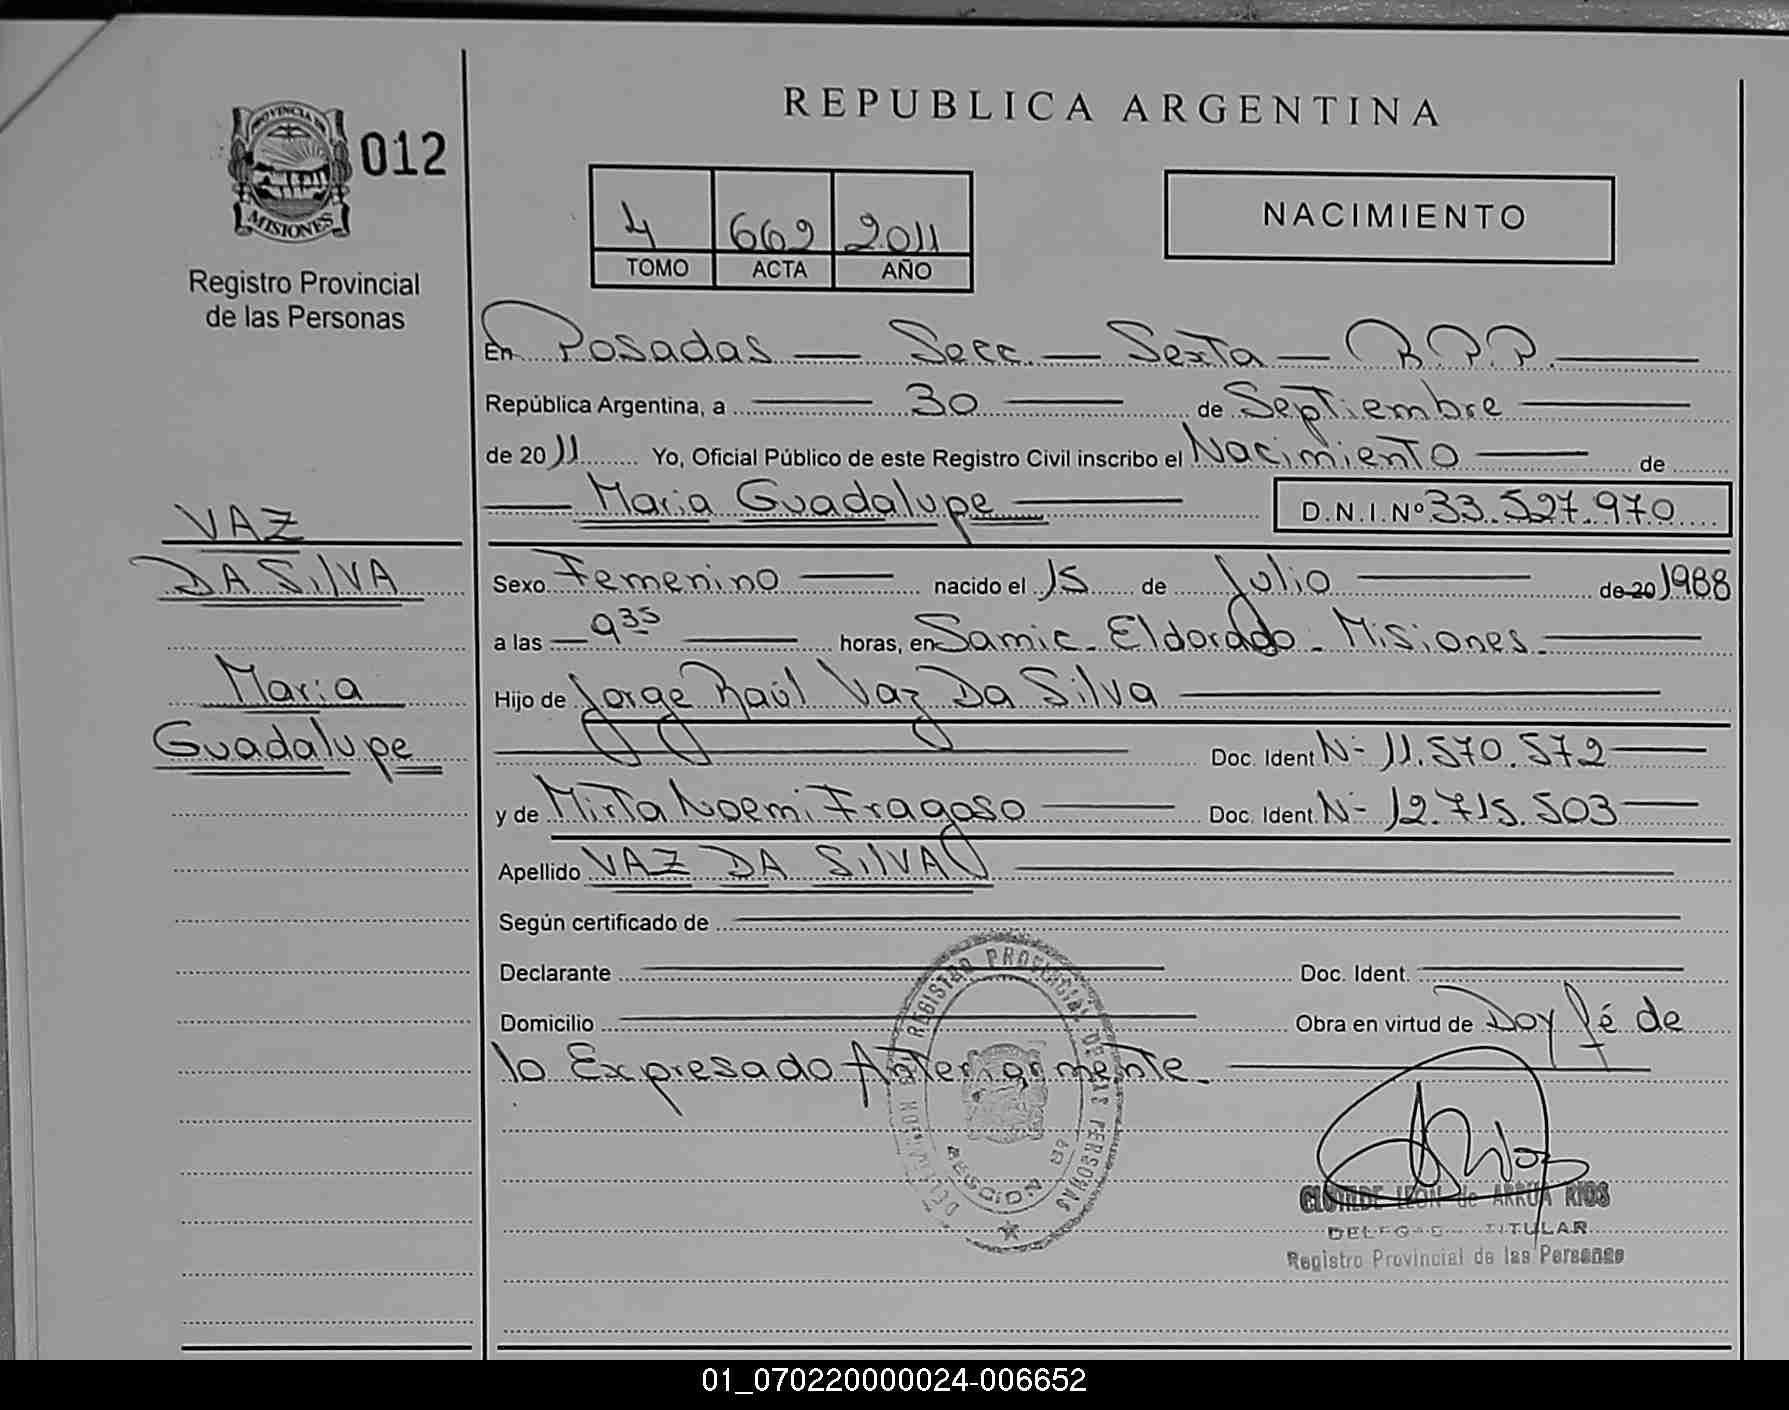 REPUBLICA ARGENTINA
PROVINCIA DE
MISIONES
012
Registro Provincial
de las Personas
4 662 2011
TOMO ACTA AÑO
NACIMIENTO
En Posadas — Secc. — Sexta — R.P.P. —
República Argentina, a — 30 — de Septiembre —
de 2011 Yo, Oficial Público de este Registro Civil inscribo el Nacimiento — de
— Maria Guadalupe — D.N.I. Nº 33.527.970
VAZ
DA SilVA
Maria
Guadalupe
Sexo Femenino — nacido el 15 de Julio — de 20 1988
a las — 9 35 — horas, en Samic. Eldorado. Misiones. —
Hijo de Jorge Raúl Vaz Da Silva —
— Doc. Ident. Nº 11.570.572 —
y de Mirta Noemi Fragoso — Doc. Ident. Nº 12.715.503 —
Apellido VAZ DA SilVA —
Según certificado de —
Declarante — Doc. Ident. —
Domicilio — Obra en virtud de Doy fé de
lo Expresado Anteriormente. —
REGISTRO PROVINCIAL DE LAS PERSONAS
CLOTILDE LEON de ARRUA RIOS
TITULAR
Registro Provincial de las Personas
01_070220000024-006652